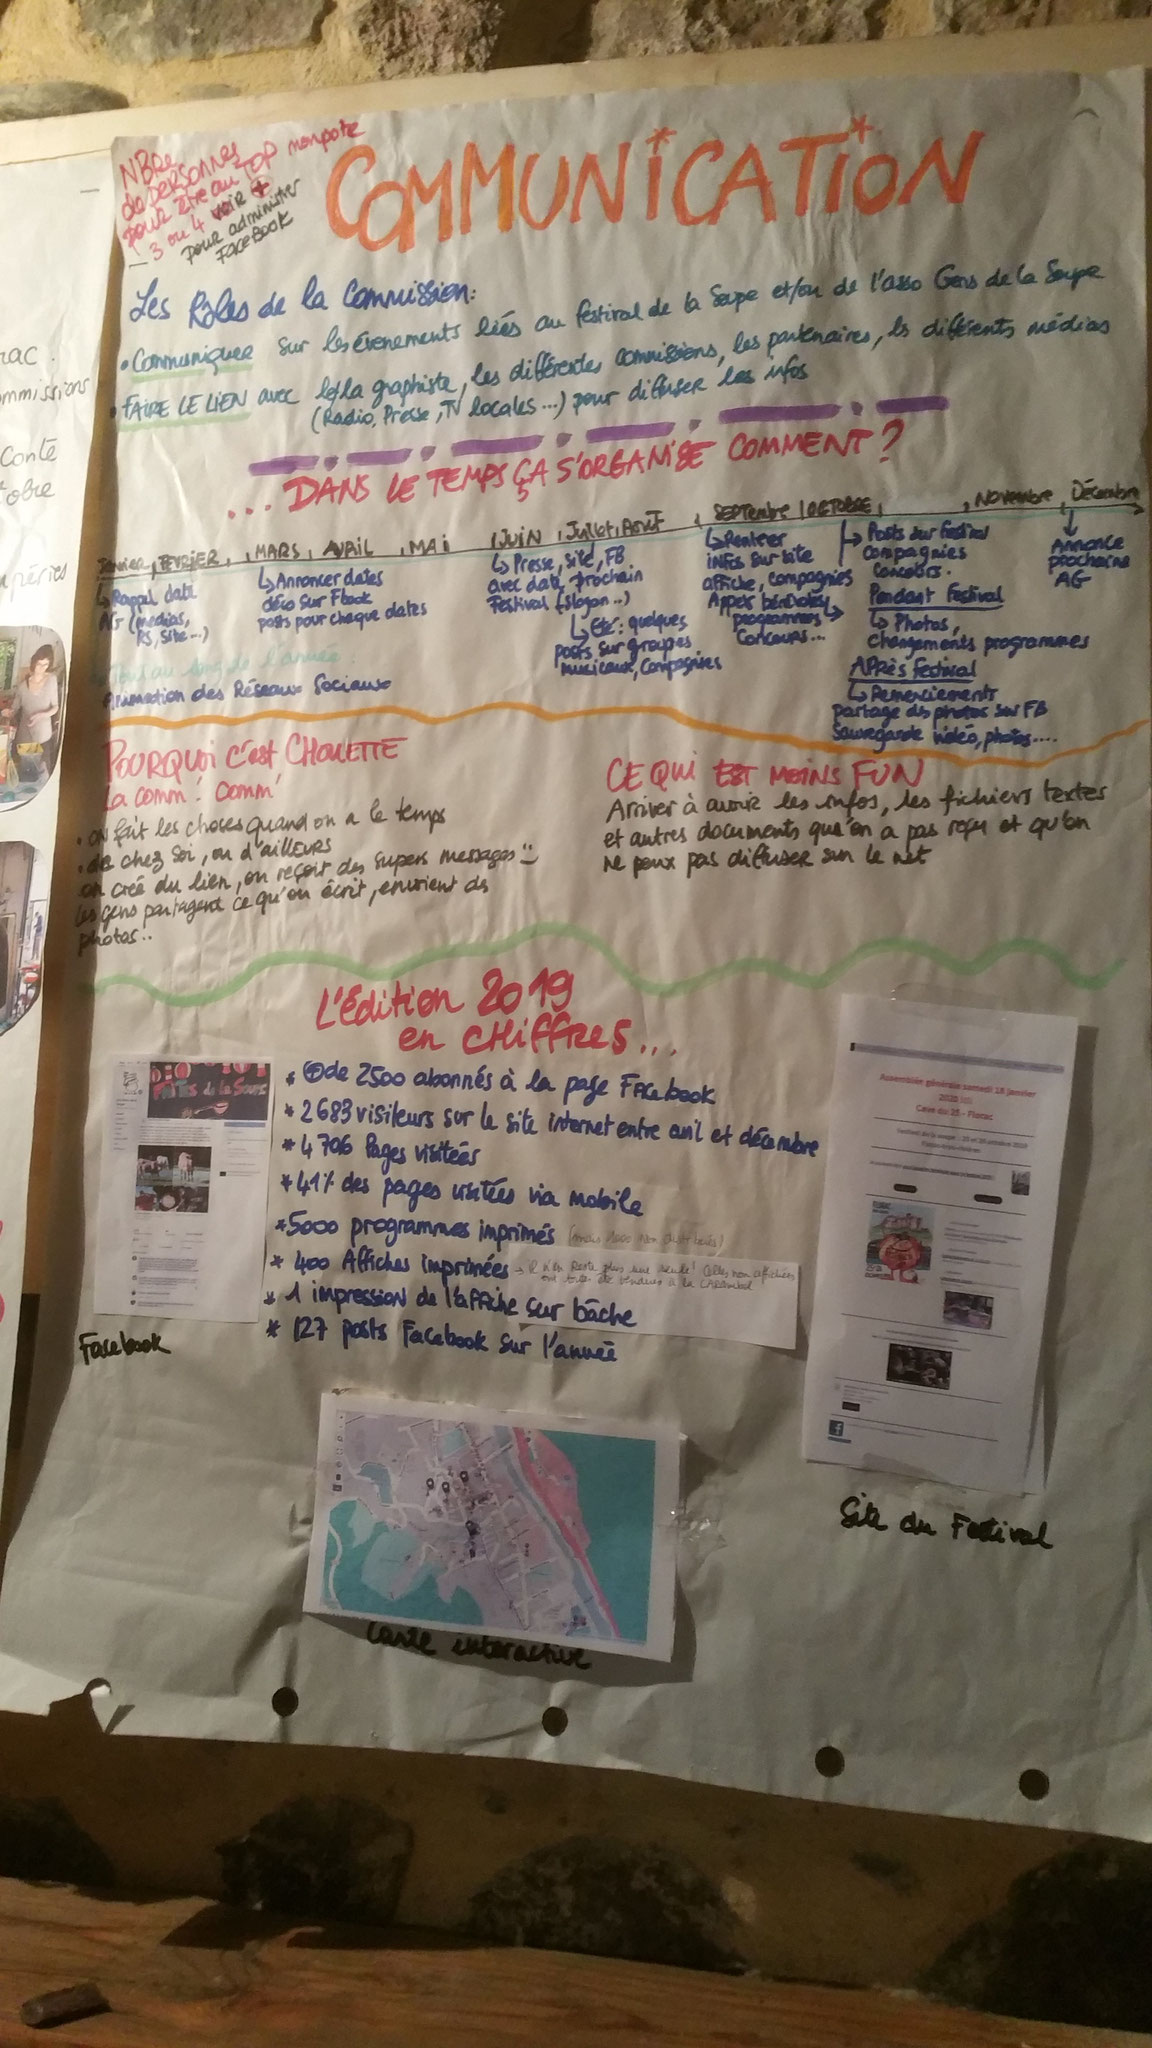 COMMUNICATION
NBre
de personnes
pour être au TOP
3 ou 4 voir +
pour administrer
FaceBook
Les Rôles de la Commission:
• Communiquer sur les évenements liés au festival de la Soupe et/ou de l'asso Gens de la Soupe
• FAIRE LE LIEN avec le/la graphiste, les différentes commissions, les partenaires, ls différents médias
(Radio, Presse, TV locales...) pour diffuser les infos
... DANS LE TEMPS ÇA S'ORGANISE COMMENT?
Janvier, FÉVRIER, MARS, AVRIL, MAi
JUIN, Juillet, Août
SEPTembre OCTOBRE, Novembre, Décembre
↳ Rappel date
AG (médias,
RS, site...)
↳ Annoncer dates
déco sur Fbook
posts pour chaque dates
↳ Presse, site, FB
avec date prochain
Festival (slogan...)
↳ Eté: quelques
posts sur groupes
musicaux, compagnies
↳ Rentrer
infos sur site
affiche, compagnies
Appels bénévoles
programmes
Concours...
Posts sur Festival
Compagnies
Concours.
Pendant Festival
↳ Photos,
changements programmes
APRès festival
↳ Remerciements
partage des photos sur FB
Sauvegarde vidéo, photos....
Annonce
prochaine
AG
Tout au long de l'année:
Animation des Réseaux Sociaux
POURQUOI C'est CHOUETTE
La comm'! Comm'
• on fait les choses quand on a le temps
• de chez soi, ou d'ailleurs
on créé du lien, on reçoit des supers messages
les gens partagent ce qu'on écrit, envoient des
photos..
CE QUI EST MOINS FUN
Arriver à avoir les infos, les fichiers textes
et autres documents qu'on a pas reçu et qu'on
ne peux pas diffuser sur le net
L'Édition 2019
en CHIFFRES...
* + de 2500 abonnés à la page Facebook
* 2683 visiteurs sur le site internet entre avril et décembre
* 4706 Pages visitées
* 41% des pages visitées via mobile
* 5000 programmes imprimés (mais 1000 non distribués)
* 400 Affiches imprimées → il n'en reste plus une seule! Celles non affichées
ont été vendues à la
* 1 impression de l'affiche sur bâche
* 127 posts Facebook sur l'année
Facebook
Assemblée générale samedi 18 janvier
2020
Cave du 25 - Florac
Site du Festival
Carte interactive